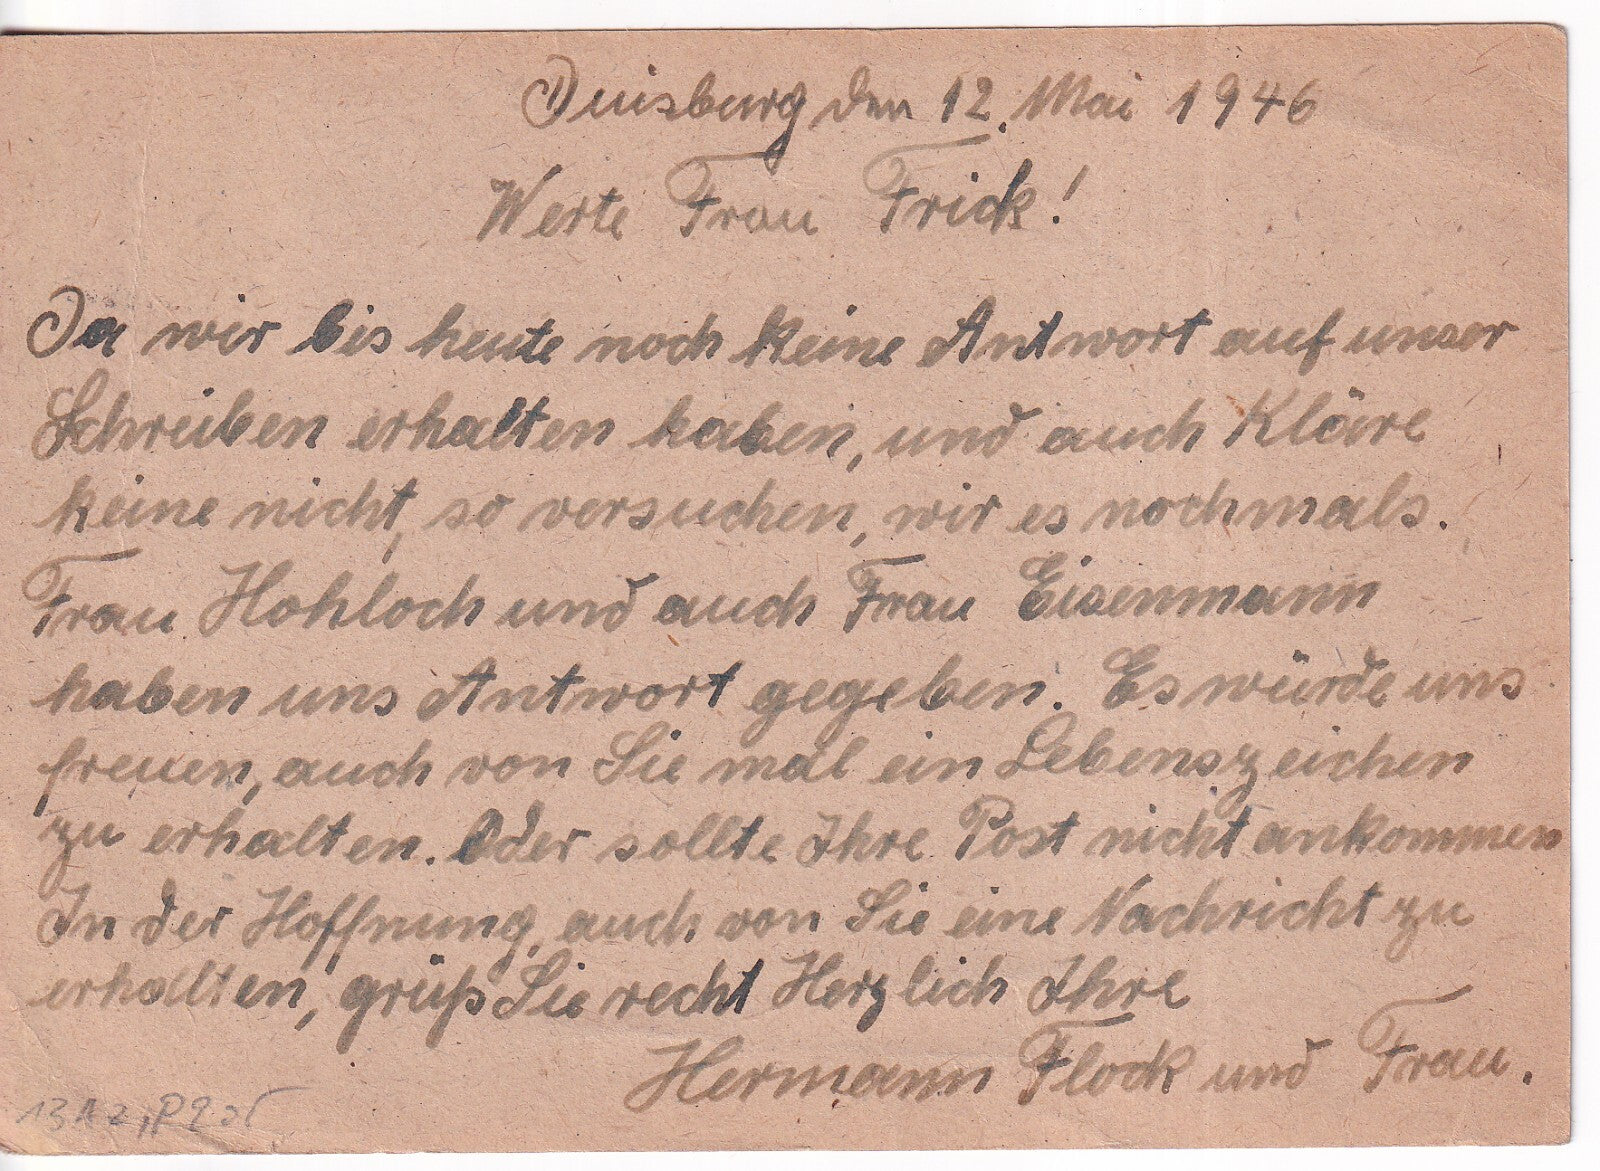 Duisburg den 12. Mai 1946
Werte Frau Frick!
Da wir bis heute noch keine Antwort auf unser
Schreiben erhalten haben, und auch Kläre
keine nicht, so versuchen, wir es nochmals.
Frau Hohloch und auch Frau Eisenmann
haben uns Antwort gegeben. Es würde uns
freuen, auch von Sie mal ein Lebenszeichen
zu erhalten. Oder sollte Ihre Post nicht ankommen
In der Hoffnung, auch von Sie eine Nachricht zu
erhalten, grüß Sie recht Herzlich Ihre
Hermann Flock und Frau.